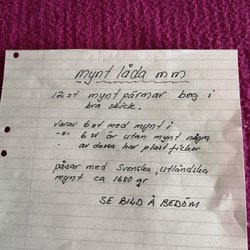 mynt låda mm
12 st mynt pärmar beg i
bra skick.
varav 6 st med mynt i
-"- 6 st är utan mynt några
av dessa har plast fickor
påsar med Svenska, utländska
mynt ca 1680 gr
SE BILD Å BEDÖM